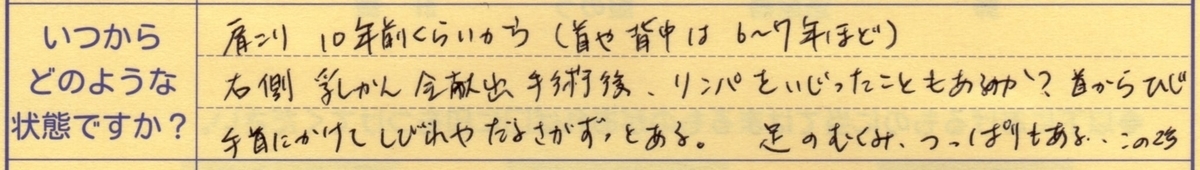 いつから
どのような
状態ですか？
肩こり 10年前くらいから（首や背中は 6〜7年ほど）
右側 乳がん 全献出 手術後、リンパをいじったこともあるのか？ 首からひじ
手首にかけてしびれやだるさがずっとある。 足のむくみ、つっぱりもある.. この2ヶ